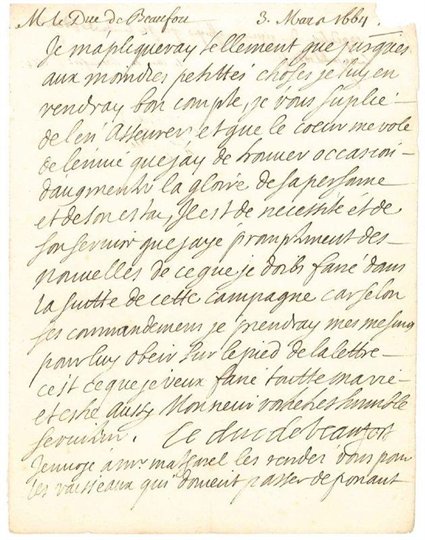 M le Duc de Beaufort 3. Mars 1664.
Je mapliqueray tellement que jusques
aux moindres petittes choses je luy en
rendray bon compte, je vous suplie
de len asseurer et que le coeur me vole
de lenvie que jay de trouver occasion
daugmenter la gloire de sa personne
et de son estat, Il est de necessite et de
son service que jaye promptment des
nouvelles de ce que je doibs faire dans
la suitte de cette campagne car selon
ses commandemens je prendray mes mesures
pour luy obeir sur le pied de la lettre
cest ce que je veux faire toutte ma vie
et estre aussy Monsieur vostre tres humble
serviteur. Le duc de beaufort
Jenvoye a mr le rendes vous pour
les vaisseaux qui doivent passer de ponant